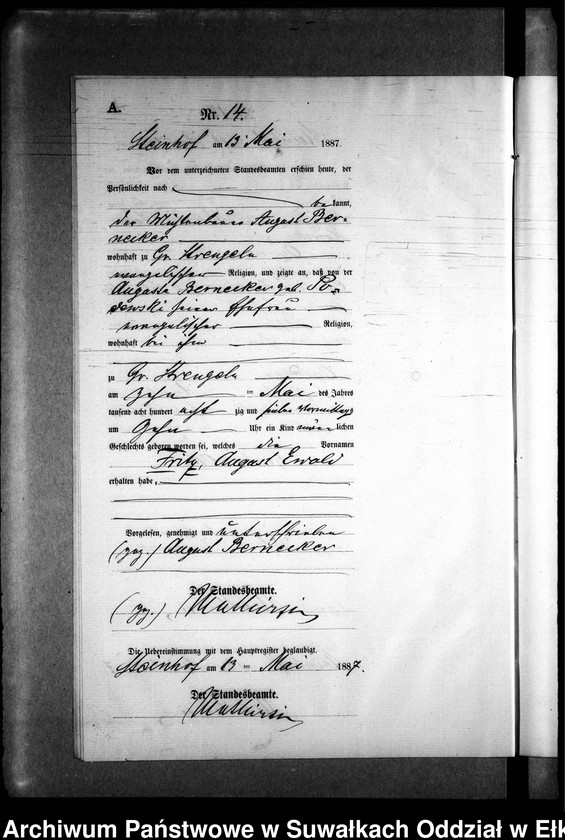 A.
Nr. 14.
Steinhof am 13 Mai 1887.
Vor dem unterzeichneten Standesbeamten erschien heute, der
Persönlichkeit nach
bekannt,
der August Ber-
necker
wohnhaft zu Gr. Strengeln
evangelischer Religion, und zeigte an, daß von der
Auguste Bernecker geb. Po-
sewski seiner Ehefrau
evangelischer Religion,
wohnhaft bei ihm
zu Gr. Strengeln
am Zehn ten Mai des Jahres
tausend acht hundert acht zig und sieben Vormittags
um Zehn Uhr ein Kind männlichen
Geschlechts geboren worden sei, welches die Vornamen
Fritz, August Ewald
erhalten habe.
Vorgelesen, genehmigt und unterschrieben
(gez.) August Bernecker
Der Standesbeamte.
(gez.)
Die Uebereinstimmung mit dem Hauptregister beglaubigt.
Steinhof am 13 ten Mai 1887.
Der Standesbeamte.
Archiwum Państwowe w Suwałkach Oddział w Ełk